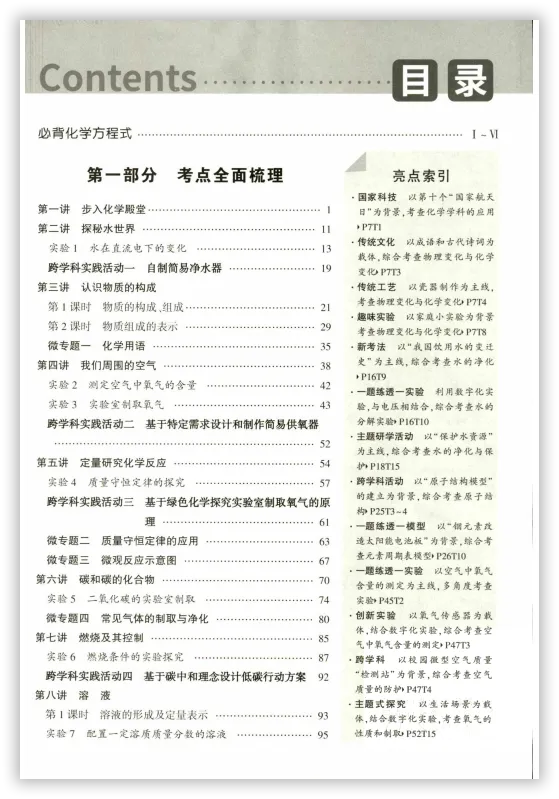 Contents 目录
必背化学方程式 Ⅰ~Ⅵ
第一部分 考点全面梳理
第一讲 步入化学殿堂 1
第二讲 探秘水世界 11
实验1 水在直流电下的变化 13
跨学科实践活动一 自制简易净水器 19
第三讲 认识物质的构成
第1课时 物质的构成、组成 21
第2课时 物质组成的表示 29
微专题一 化学用语 35
第四讲 我们周围的空气 38
实验2 测定空气中氧气的含量 42
实验3 实验室制取氧气 43
跨学科实践活动二 基于特定需求设计和制作简易供氧器
52
第五讲 定量研究化学反应 54
实验4 质量守恒定律的探究 57
跨学科实践活动三 基于绿色化学探究实验室制取氧气的原
理 61
微专题二 质量守恒定律的应用 63
微专题三 微观反应示意图 67
第六讲 碳和碳的化合物 70
实验5 二氧化碳的实验室制取 74
微专题四 常见气体的制取与净化 80
第七讲 燃烧及其控制 85
实验6 燃烧条件的实验探究 87
跨学科实践活动四 基于碳中和理念设计低碳行动方案 92
第八讲 溶 液
第1课时 溶液的形成及定量表示 93
实验7 配置一定溶质质量分数的溶液 95
亮点索引
·国家科技 以第十个“国家航天
日”为背景,考查化学学科的应用
▸P7T1
·传统文化 以成语和古代诗词为
载体,综合考查物理变化与化学
变化▸P7T3
·传统工艺 以瓷器制作为主线,
考查物理变化与化学变化▸P7T4
·趣味实验 以家庭小实验为背景
考查物理变化与化学变化▸P7T8
·新考法 以“我国饮用水的变迁
史”为主线,综合考查水的净化
▸P16T9
·一题练透一实验 利用数字化实
验,与电压相结合,综合考查水的
分解实验▸P16T10
·主题研学活动 以“保护水资源”
为主线,综合考查水的净化与保
护▸P18T15
·跨学科活动 以“原子结构模型”
的建立为背景,综合考查原子结
构▸P25T3~4
·一题练透一模型 以“铟元素改
造太阳能电池板”为背景,综合考
查元素周期表模型▸P26T10
·一题练透一实验 以空气中氧气
含量的测定为主线,多角度考查
实验▸P45T2
·创新实验 以氧气传感器为载
体,结合数字化实验,综合考查空
气中氧气含量的测定▸P47T3
·跨学科 以校园微型空气质量
“检测站”为背景,综合考查空气
质量的防护▸P47T4
·主题式探究 以生活场景为载
体,结合数字化实验,考查氧气的
性质和制取▸P52T15